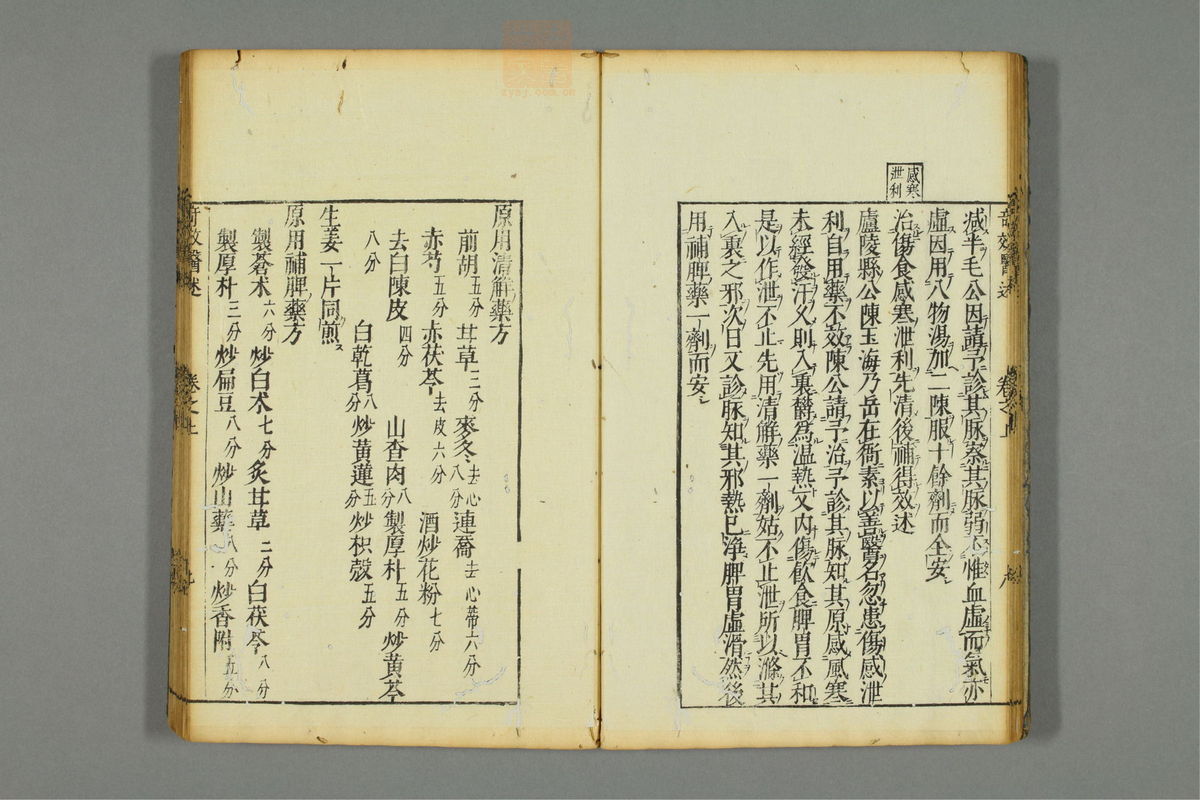 感寒
泄利
減半毛公因請予診其脉察其脉弱不惟血虛而氣亦
虛因用八物湯加二陳服十餘劑而全安
治傷食感寒泄利先清後補得效述
廬陵縣公陳玉海乃岳在衙素以善醫名忽患傷感泄
利自用藥不效陳公請予治予診其脉知其原感風寒
未經發汗久則入裏欝為温熱又内傷飲食脾胃不和
是以作泄不止先用清解藥一劑姑不止泄所以滌其
入裏之邪次日又診脉知其邪熱已淨脾胃虛滑然後
用補脾藥一劑而安
奇效醫述 卷之上 八
原用清解藥方
前胡五分 甘草三分 麥冬去心八分 連喬去心蒂六分
赤芍五分 赤茯苓去皮六分 酒炒花粉七分
去白陳皮四分 山查肉八分 製厚朴五分 炒黄芩
八分 白乾葛八分 炒黄蓮五分 炒枳殼五分
生姜一片同煎
原用補脾藥方
製蒼术六分 炒白术七分 炙甘草二分 白茯苓八分
製厚朴三分 炒扁豆八分 炒山藥八分 炒香附五分
奇效醫述 卷之上 九
zysj.com.cn